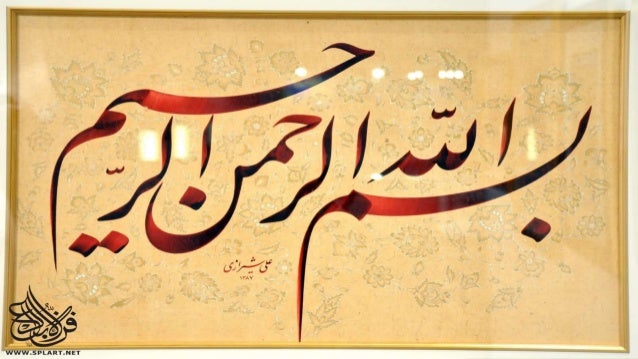 بسم الله الرحمن الرحیم
علی شیرازی
۱۳۸۷
WWW.SPLART.NET